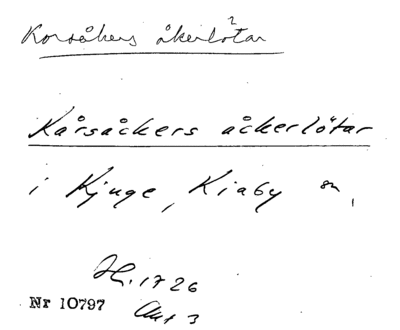 Korsåkers åkerlötar
?
Kårsackers ackerlötar
i Kjuge, Kiaby sn,
H. 1726
Nr 10797
Akt 3